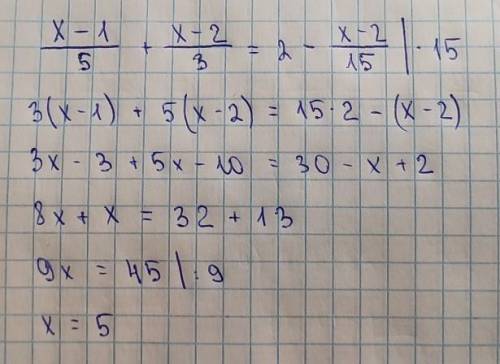 (x-1)/5 + (x-2)/3 = 2 - (x-2)/15 | · 15
3(x-1) + 5(x-2) = 15·2 - (x-2)
3x - 3 + 5x - 10 = 30 - x + 2
8x + x = 32 + 13
9x = 45 | : 9
x = 5